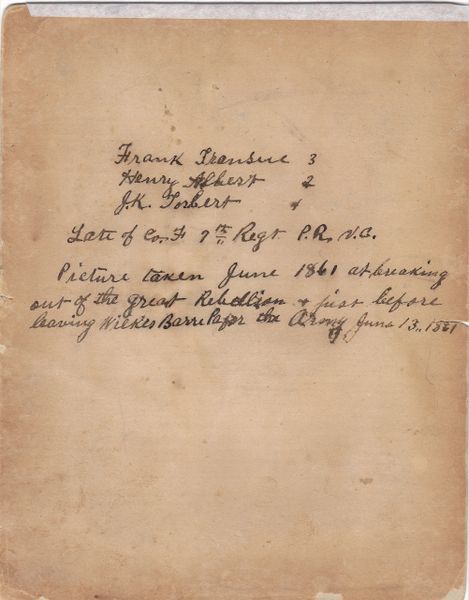 Frank Transue 3
Henry Albert 2
J.K. Torbert 1
Late of Co. F 7th Regt P.R.V.C.
Picture taken June 1861 at breaking
out of the great Rebellion & just before
leaving Wilkes Barre Pa for the Army June 13, 1861